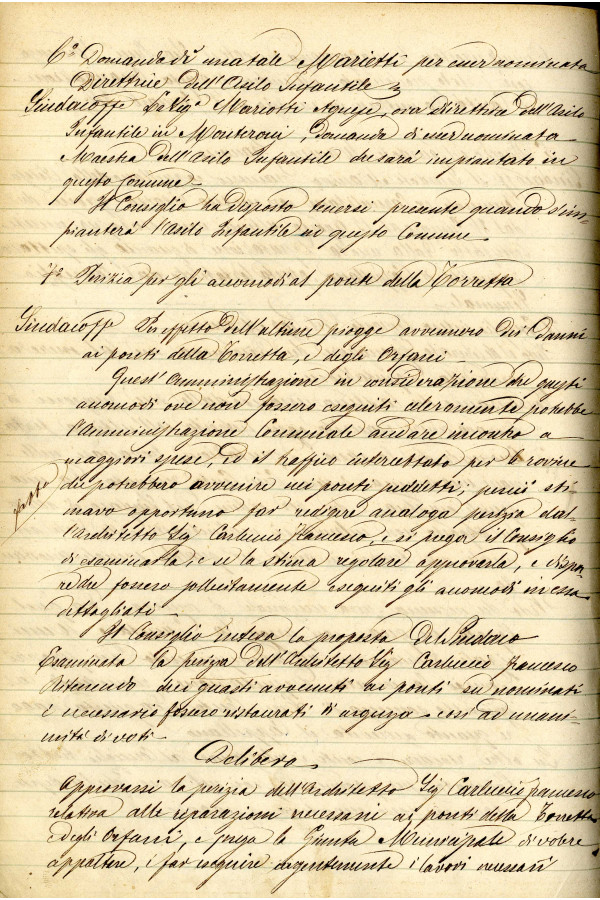 6º Domanda di una tale Marietti per esser nominata
Direttrice dell'Asilo Infantile
Sindacoffe La Sigª Mariotti Agnese, ora Direttrice dell'Asilo
Infantile in Monteroni, domanda di esser nominata
Maestra dell'Asilo Infantile che sarà impiantato in
questo Comune
Il Consiglio ha disposto tenersi presente quando s'im-
pianterà l'Asilo Infantile in questo Comune
7º Perizia per gli accomodi al ponte della Torretta
Sindacoffe Per effetto dell'altime piogge avvennero dei danni
ai ponti della Torretta, e degli Orfani
Quest'Amministrazione in considerazione che questi
accomodi ove non fossero eseguiti celeramente potrebbe
l'Amministrazione Comunale andare incontro a
maggiori spese, ed il traffico intercettato per le rovine
che potrebbero avvenire nei ponti suddetti, perciò sti-
fatto
mavo opportuno far redigere analoga perizia dal-
l'Architetto Sig Carluccio Francesco, e si prega il Consiglio
di esaminarla, e se la stima regolare approvarla, e dispor-
re che fossero sollecitamente eseguiti gli accomodi in essa
dettagliati
Il Consiglio intesa la proposta del Sindaco
Esaminata la perizia dell'Architetto Sig Carluccio Francesco
Ritenendo che i guasti avvenuti ai ponti su nominati
è necessario fossero ristaurati di urgenza così ad unani-
mità di voti
Delibera
Approvarsi la perizia dell'Architetto Sig Carluccio Francesco
relativa alle reparazioni necessarie ai ponti della Torretta
e degli Orfani, e prega la Giunta Municipale di volere
appaltare, i far eseguire urgentemente i lavori necessari